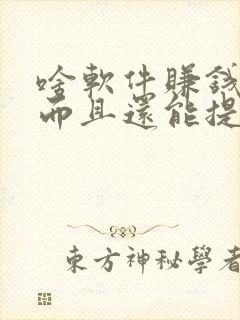 啥軟件賺錢
而且還能提
東方神秘學者